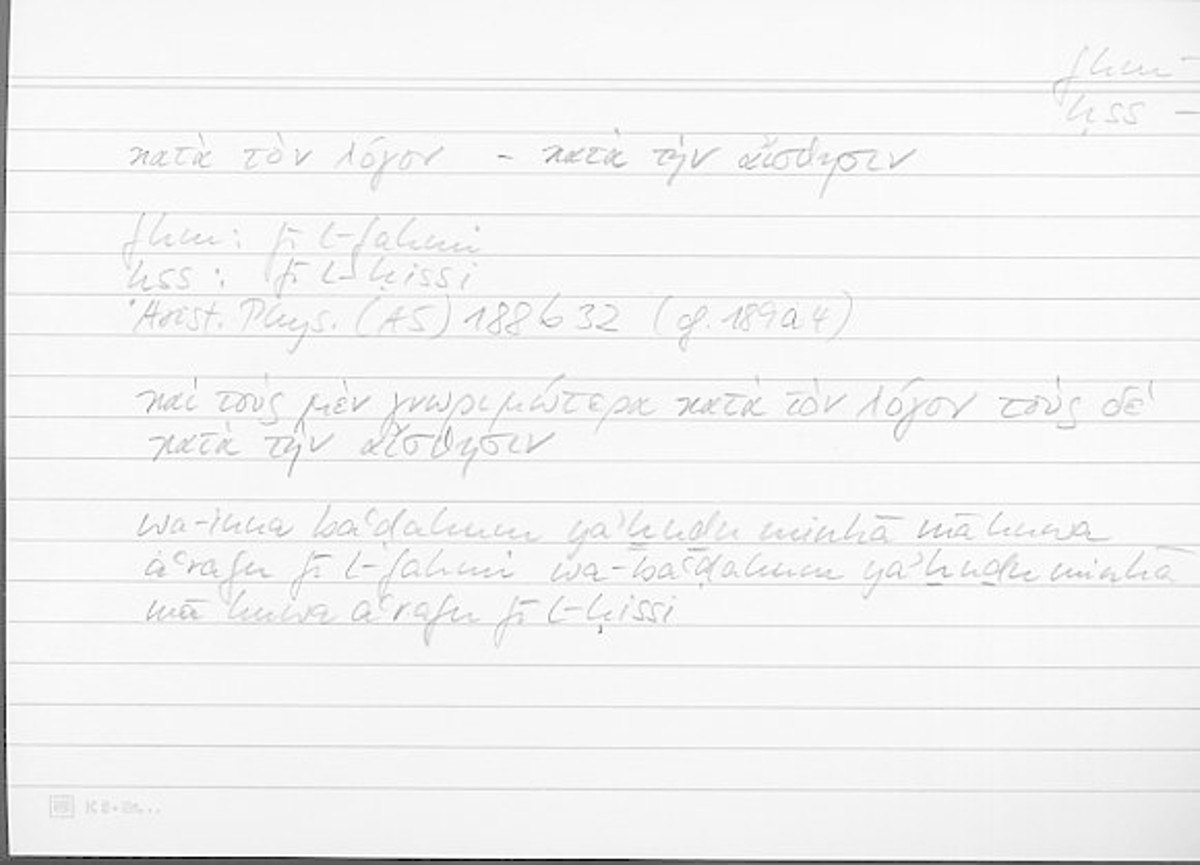 fhm –
ḥss –
κατὰ τὸν λόγον – κατὰ τὴν αἴσθησιν
fhm: fī l-fahmi
ḥss: fī l-ḥissi
Arist. Phys. (AS) 188b32 (cf. 189a4)
καὶ τοὺς μὲν γνωριμώτερα κατὰ τὸν λόγον τοὺς δὲ
κατὰ τὴν αἴσθησιν
wa-inna baʿḍahum yaʾḫuḏu minhā mā huwa
aʿrafu fī l-fahmi wa-baʿḍahum yaʾḫuḏu minhā
mā huwa aʿrafu fī l-ḥissi